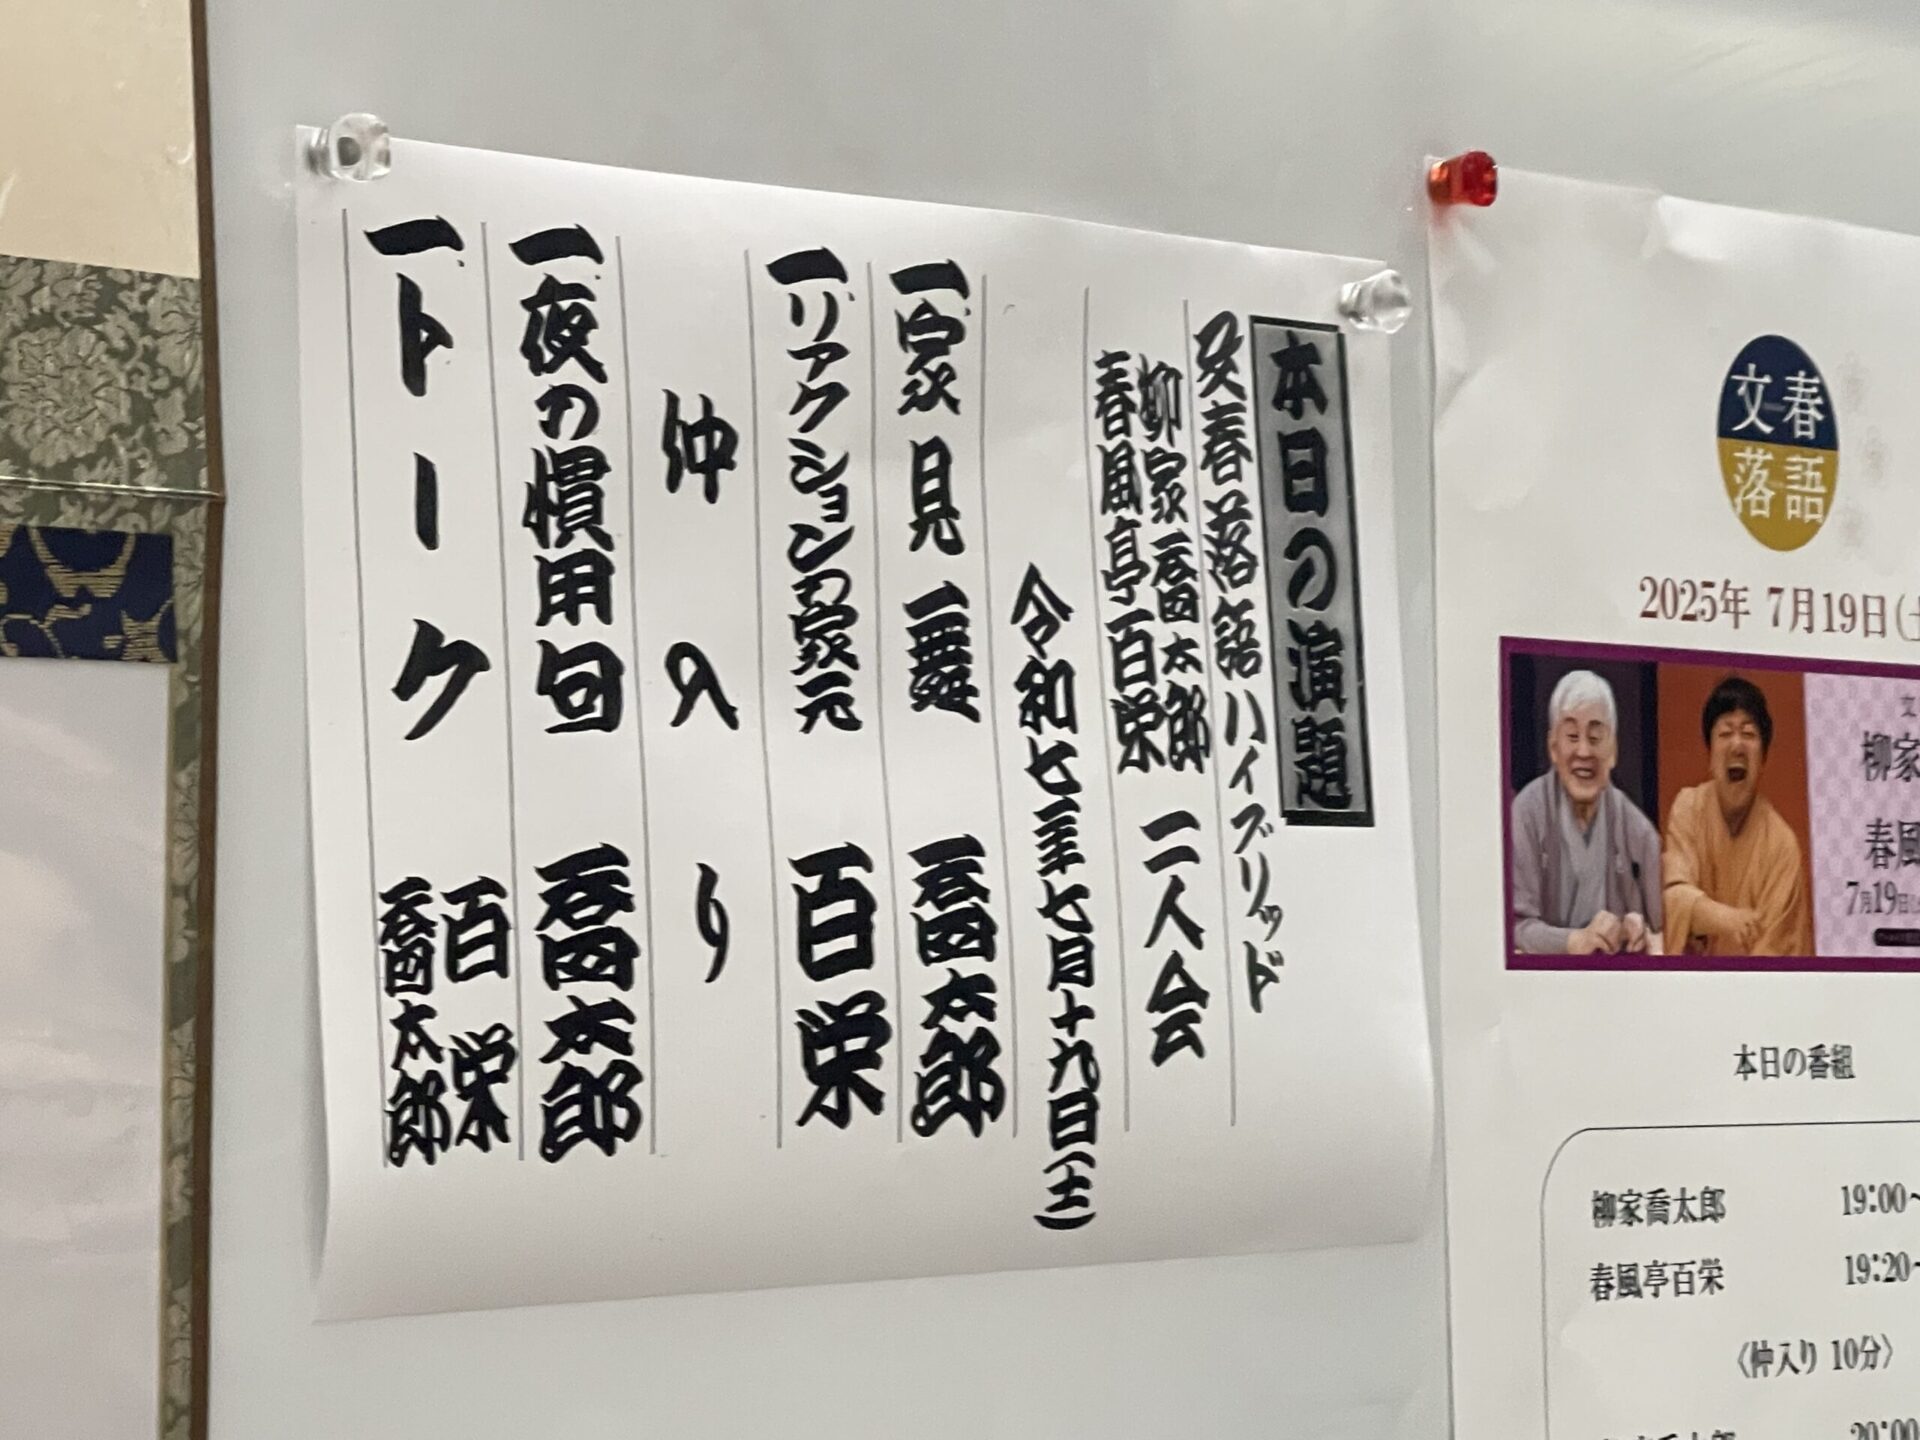 本日の演題
文春落語ハイブリッド
柳家喬太郎
春風亭百栄
二人会
令和七年七月十九日(土)
一、家見舞 喬太郎
一、リアクションの家元 百栄
仲入り
一、夜の慣用句 喬太郎
一、トーク 百栄
喬太郎
文春
落語
2025年 7月19日(土
文
柳家
春風
7月19日
本日の番組
柳家喬太郎 19:00~
春風亭百栄 19:20~
〈仲入り 10分〉
20:00